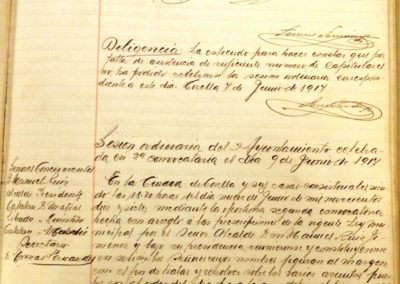 Diligencia. La extiendo para hacer constar que por
falta de asistencia de suficiente numero de Capitulares
no ha podido celebrarse la sesion ordinaria correspon-
diente a este dia. Corella 7 de Junio de 1917
Sesion ordinaria del Ayuntamiento celebra-
da en 2ª convocatoria el dia 9 de Junio de 1917
Señores Concurrentes
Manuel Ruiz
Alcalde Presidente
Catalan
Catalan
Secretario
En la Ciudad de Corella y sus casas consistoriales sien-
do las 18,30 horas del dia nueve de Junio de mil novecientos
diez y siete, mediante la oportuna segunda convocatoria
hecha con arreglo a las prescripciones de la vigente Ley mu-
nicipal por el Señor Alcalde D. Manuel Ruiz Ji-
menez y bajo su presidencia, reunieronse y constituyeron-
en sesion los Señores cuyos nombres figuran al margen
con el fin de tratar y resolver sobre los varios asuntos